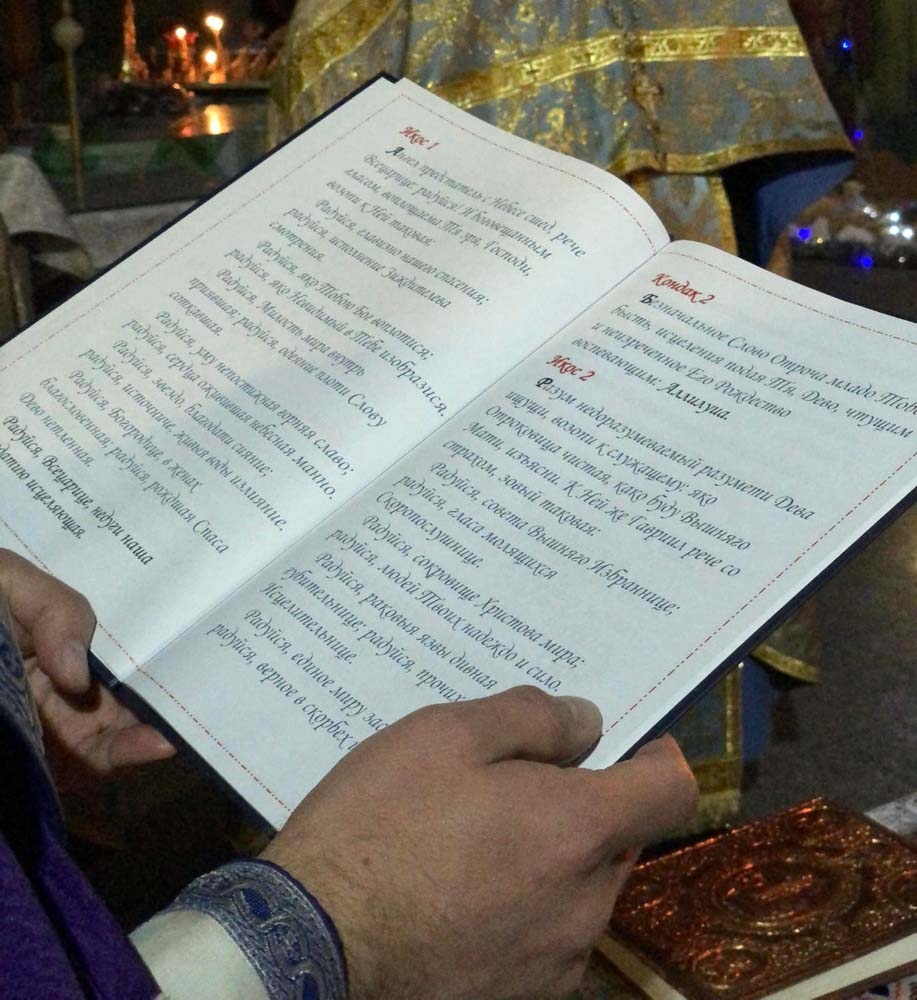 Икос 1
Ангел предстатель с Небесе сшед, рече
Всецарице, радуйся! И боговещанным
гласом, воплощаема Тя зря, Господи,
возопи к Ней таковая:
Радуйся, главизно нашего спасения;
радуйся, исполнение Зиждителева
смотрения.
Радуйся, яко Тобою Бог воплотися;
радуйся, яко Невидимый в Тебе изобразися.
Радуйся, Милость мира внутрь
приявшая; радуйся, одеяние плоти Слову
соткавшая.
Радуйся, уму непостижная горняя славо;
радуйся, сердца оживившая небесная манно.
Радуйся, звездо, благодати сияние;
радуйся, источниче, живыя воды излияние.
Радуйся, Богородице, в женах
благословенная; радуйся, рождшая Спаса
Дево нетленная.
Радуйся, Всецарице, недуги наша
благодатию исцеляющая.
Кондак 2
Безначальное Слово Отроча младо Тобо
бысть, исцеления подая Тя, Дево, чтущим
и неизреченное Его Рождество
воспевающим: Аллилуиа.
Икос 2
Разум недоразумеваемый разумети Дева
ищущи, возопи к служащему: яко
Отроковица чистая, како буду Вышняго
Мати, изъясни. К Ней же Гавриил рече со
страхом, зовый таковая:
Радуйся, совета Вышняго Избраннице;
радуйся, гласа молящихся
Скоропослушнице.
Радуйся, сокровище Христова мира;
радуйся, людей Твоих надеждо и сило.
Радуйся, раковыя язвы дивная
губительнице; радуйся, прочих
Исцелительнице.
Радуйся, единое миру зас
радуйся, верное в скорбех